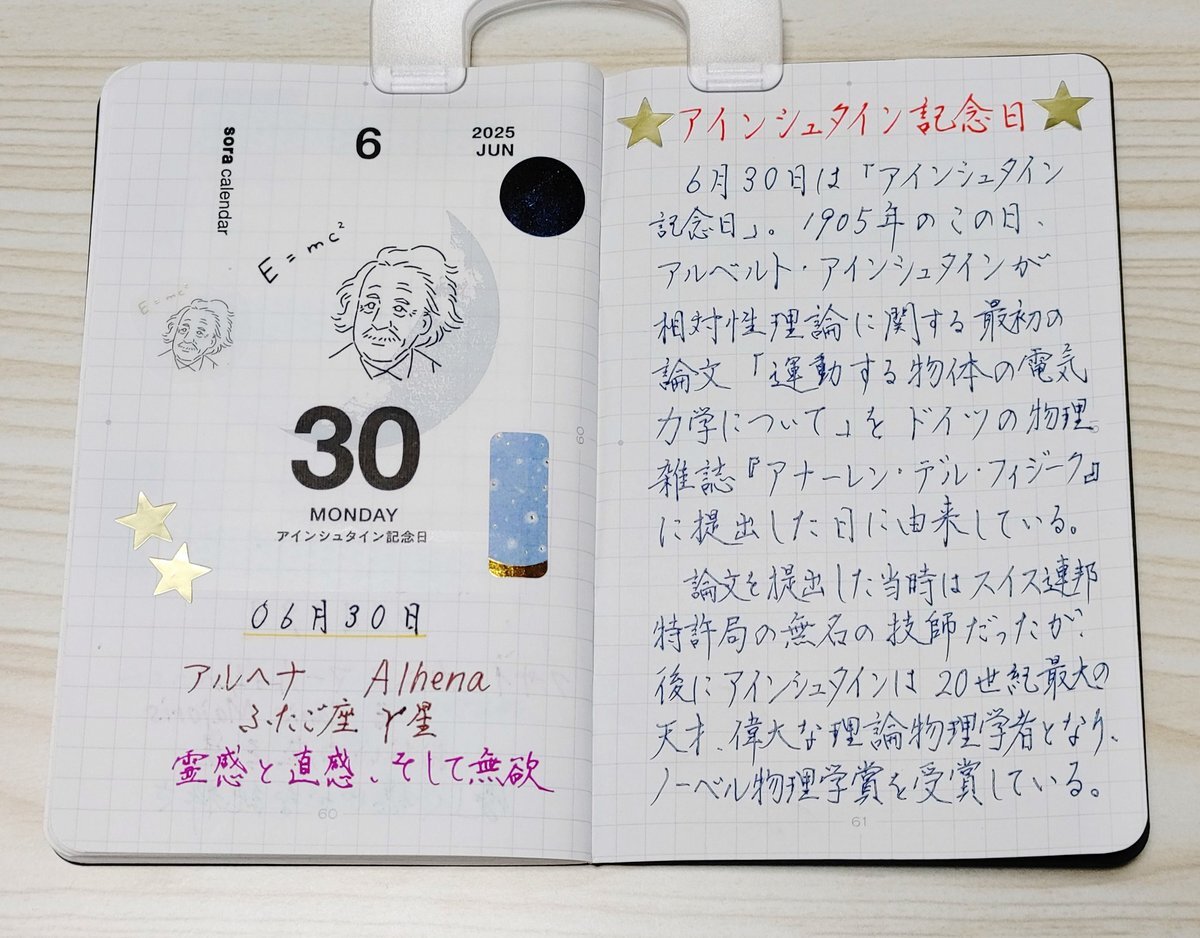 sora calendar
6
2025
JUN
E = mc²
E = mc²
30
MONDAY
アインシュタイン記念日
06月30日
アルヘナ Alhena
ふたご座 γ星
霊感と直感、そして無欲
60
60
アインシュタイン記念日
6月30日は「アインシュタイン
記念日」。1905年のこの日、
アルベルト・アインシュタインが
相対性理論に関する最初の
論文「運動する物体の電気
力学について」をドイツの物理
雑誌『アナーレン・デル・フィジーク』
に提出した日に由来している。
論文を提出した当時はスイス連邦
特許局の無名の技師だったが、
後にアインシュタインは20世紀最大の
天才、偉大な理論物理学者となり、
ノーベル物理学賞を受賞している。
61